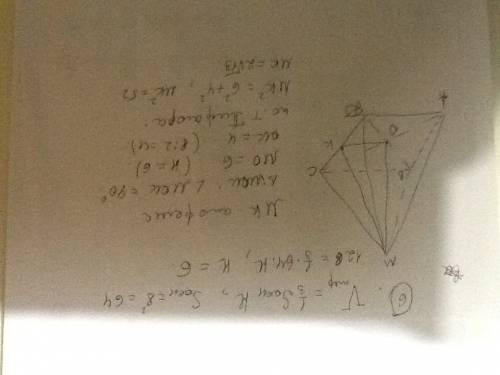 6. Vпир = 1/3 Sосн H, Sосн = 8² = 64
128 = 1/3 · 64 · H, H = 6
MK апофема
△MOK: ∠MOK = 90°
MO = 6 (H = 6)
OK = 4 (8:2 = 4)
по т. Пифагора:
MK² = 6² + 4², MK² = 52
MK = 2√13
M
B
C
K
O
A
D